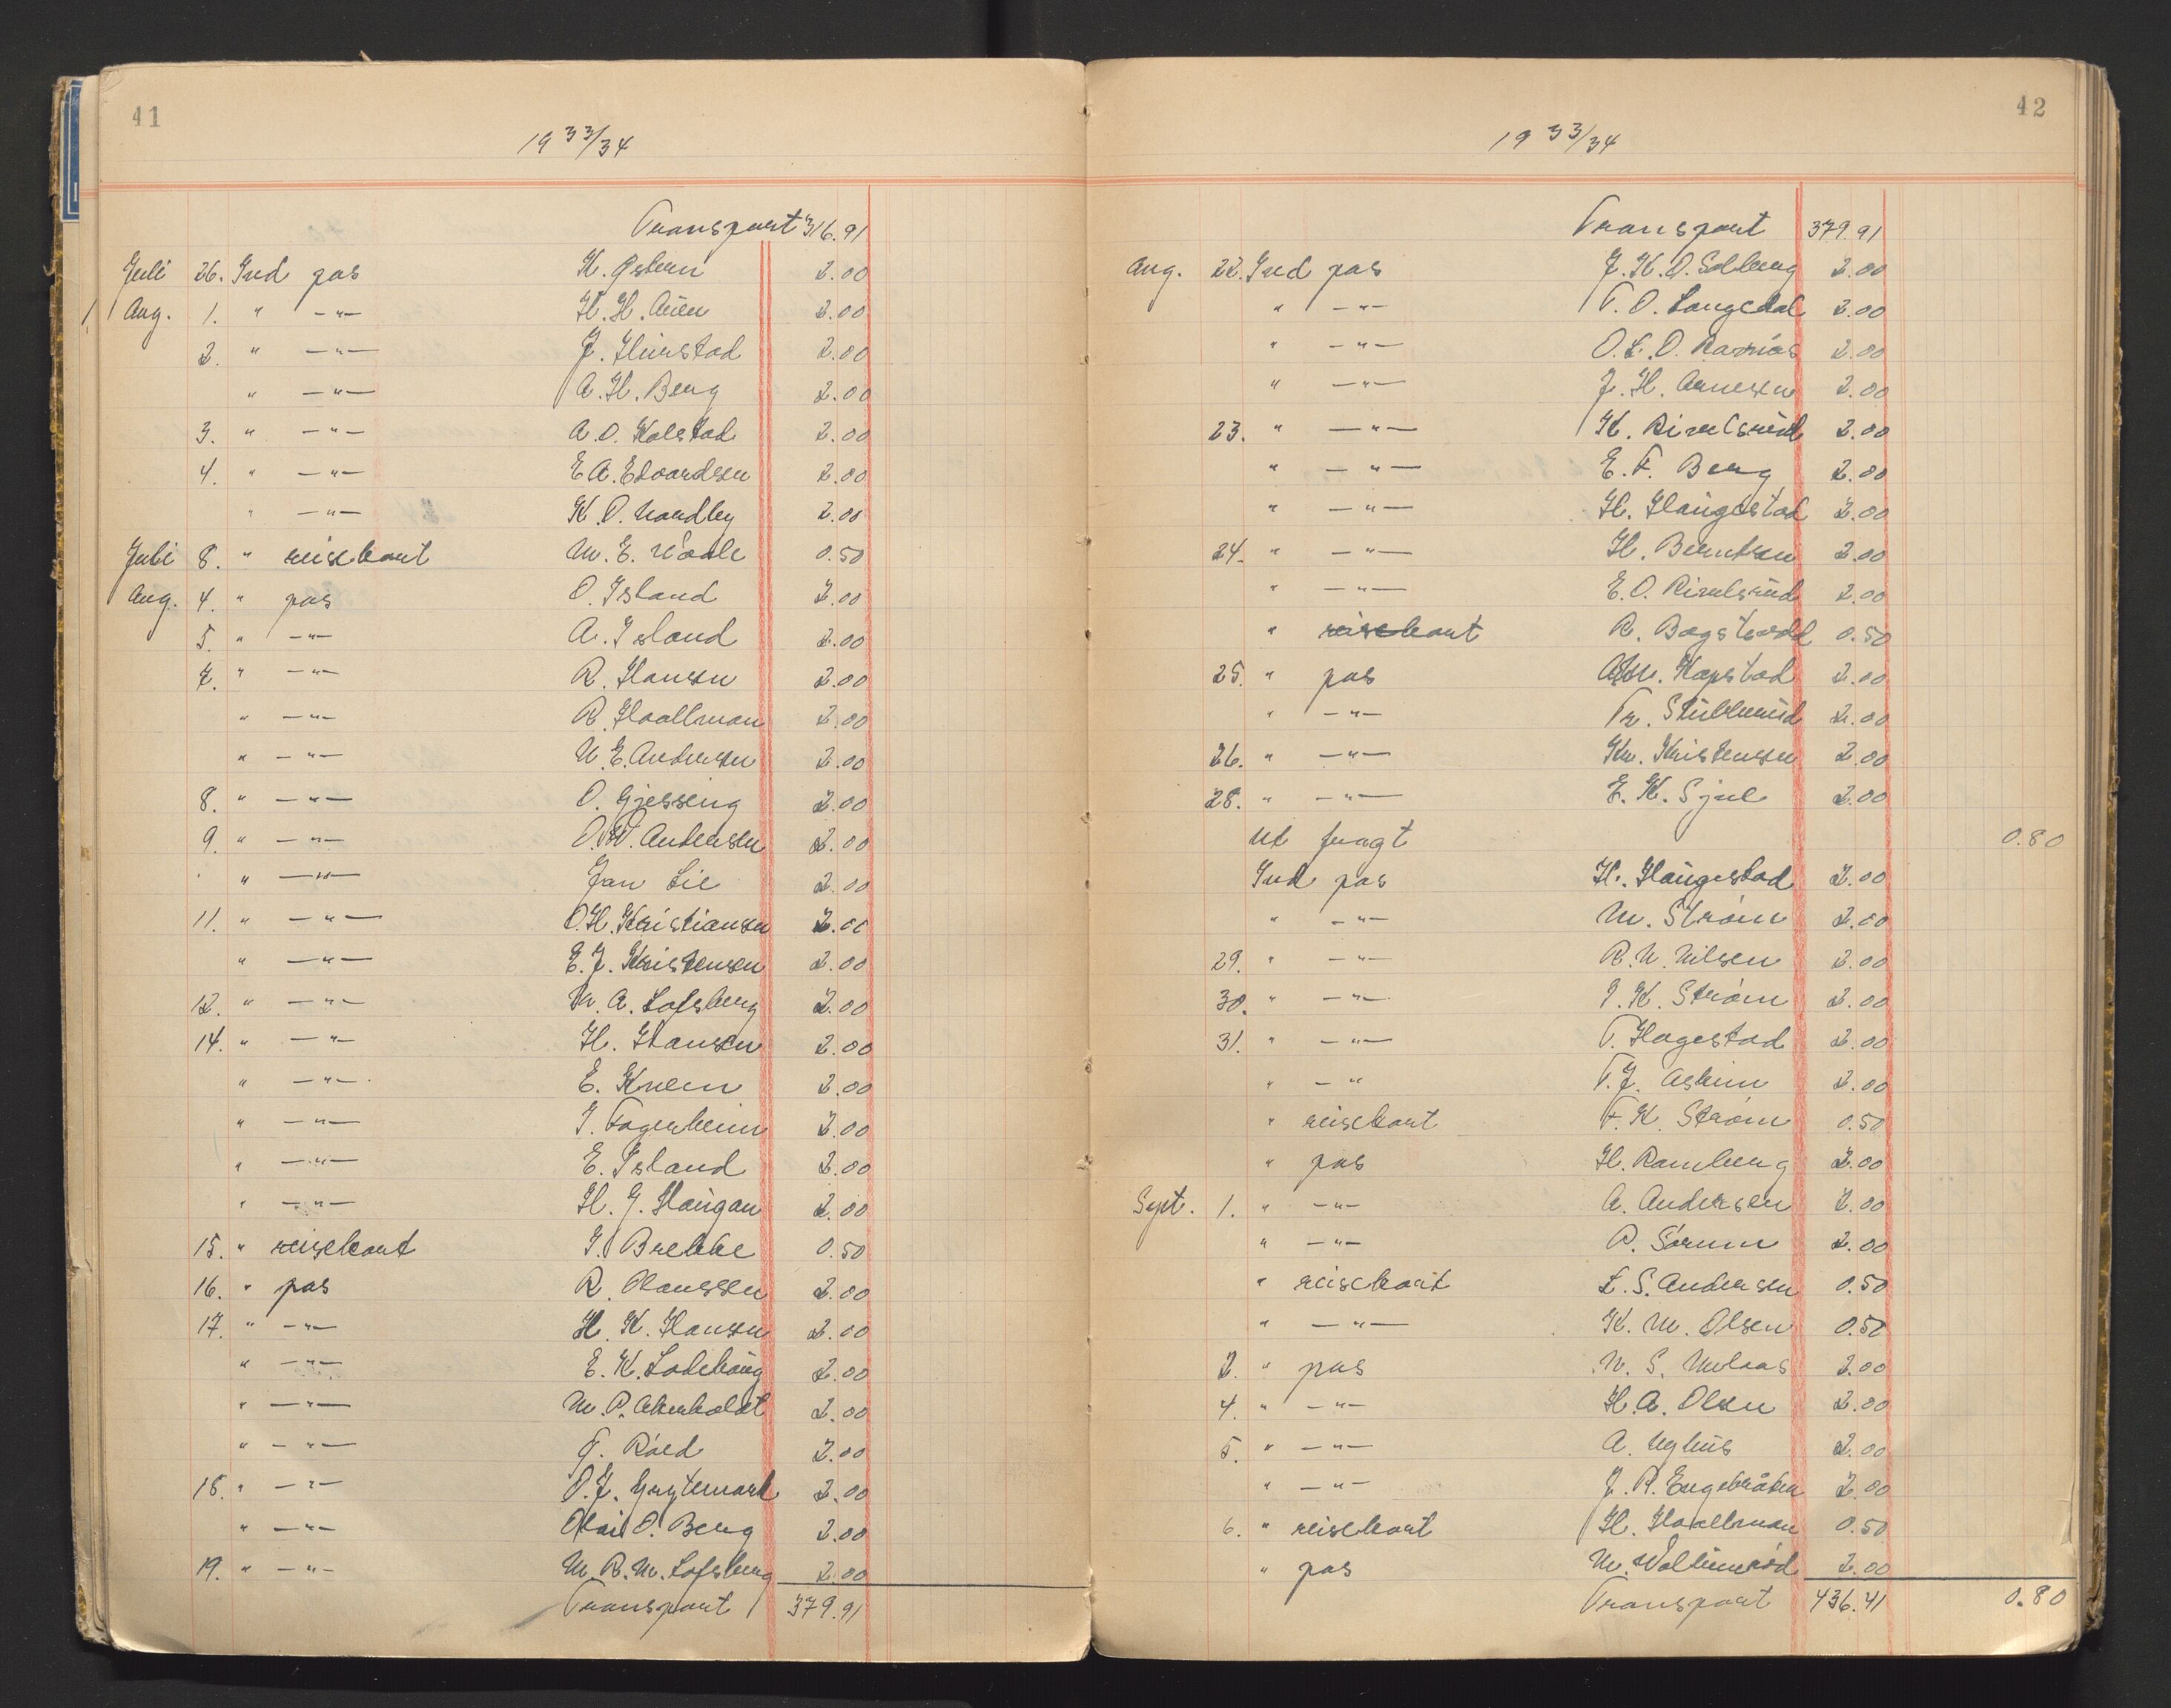 41
19 33/34
Transport 316.91
Juli 26. Ind pas K. Østern 2.00
1. Aug. 1. " —"— H. H. Auen 2.00
2. " —"— J. Huirstad 2.00
" —"— A. H. Berg 2.00
3. " —"— A. O. Kolstad 2.00
4. " —"— E A. Edvardsen 2.00
" —"— K. O. Nordby 2.00
Juli 8. " reisekort M. E. 0.50
Aug. 4. " pas O. Island 2.00
5. " —"— A. Island 2.00
7. " —"— R. Hansen 2.00
" —"— R. Haallman 2.00
" —"— N. E. Andersen 2.00
8. " —"— O. Gjessing 2.00
9. " —"— O. W. Andersen 2.00
" —"— Jan Lie 2.00
11. " —"— O. H. Kristiansen 2.00
" —"— E. J. Kristensen 2.00
12. " —"— M. A. Lofsberg 2.00
14. " —"— H. Hansen 2.00
" —"— E. Krem 2.00
" —"— I. Fagerheim 2.00
" —"— E. Island 2.00
" —"— H. G. Haugan 2.00
15. " reisekort I. Brekke 0.50
16. " pas R. Olaussen 2.00
17. " —"— H. K. Hansen 2.00
" —"— E. K. Ladehaug 2.00
" —"— M. P. Akerholdt 2.00
" —"— T. Röed 2.00
18. " —"— O. J. Grytemark 2.00
" —"— Olai O. Berg 2.00
19. " —"— M. R. M. Lofsberg 2.00
Transport 379.91
42
19 33/34
Transport 379.91
Aug. 22. Ind pas J. K. O. Solberg 2.00
" —"— T. O. Langedal 2.00
" —"— O. L. O. Ramäs 2.00
" —"— J. H. Arnesen 2.00
23. " —"— K. Rivelsrud 2.00
" —"— E. F. Berg 2.00
" —"— H. Haugestad 2.00
24. " —"— H. Berntsen 2.00
" —"— E. O. Rivelsrud 2.00
" reisekort R. Bogstvedd 0.50
25. " pas Kopstad 2.00
" —"— Tr. Stubberud 2.00
26. " —"— Kr. Kristensen 2.00
28. " —"— E. K. Sjul 2.00
Ut fragt 0.80
Ind pas H. Haugestad 2.00
" —"— M. Strøm 2.00
29. " —"— R. N. Nilsen 2.00
30. " —"— I. K. Strøm 2.00
31. " —"— T. Hagestad 2.00
" —" T. J. Askim 2.00
" reisekort F. K. Strøm 0.50
" pas H. Ramberg 2.00
Sept. 1. " —"— A. Andersen 2.00
" —"— R. Sørum 2.00
" reisekort L. S. Andersen 0.50
" —"— K. M. Olsen 0.50
2. " pas N. S. Molaas 2.00
4. " —"— H. A. Olsen 2.00
5. " —"— A. Nyhus 2.00
" —"— J. R. Engebråten 2.00
6. " reisekort H. Haallman 0.50
" pas M. Wollumrød 2.00
Transport 436.41 0.80